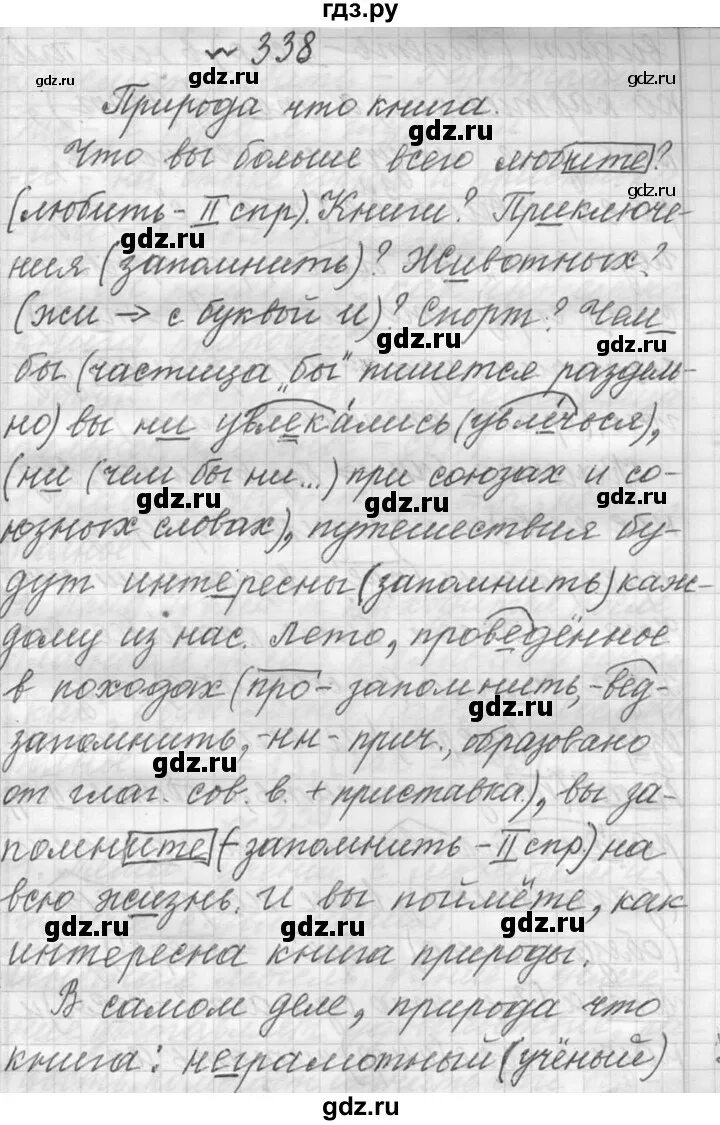 гдз.ру
~ 338
gdz.ru gdz.ru gdz.ru
Природа что книга.
gdz.ru
Что вы больше всего любите?
(любить - II спр). Книги? Приключе-
gdz.ru gdz.ru
ния (запомнить)? Животных?
(жи → с буквой и)? Спорт? Чем
gdz.ru gdz.ru
бы (частица „бы" пишется раздель-
но) вы ни увлекались (увлечься),
(ни (чем бы ни...) при союзах и со-
gdz.ru gdz.ru gdz.ru
юзных словах), путешествия бу-
дут интересны (запомнить) каж-
дому из нас. Лето, проведённое
в походах (про- запомнить, -вед-
gdz.ru
запомнить, -нн- прич., образовано
gdz.ru
от глаг. сов. в. + приставка), вы за-
помните (- запомнить - II спр) на
всю жизнь. И вы поймёте, как
gdz.ru gdz.ru gdz.ru
интересна книга природы.
В самом деле, природа что
книга: неграмотный (учёный)
gdz.ru